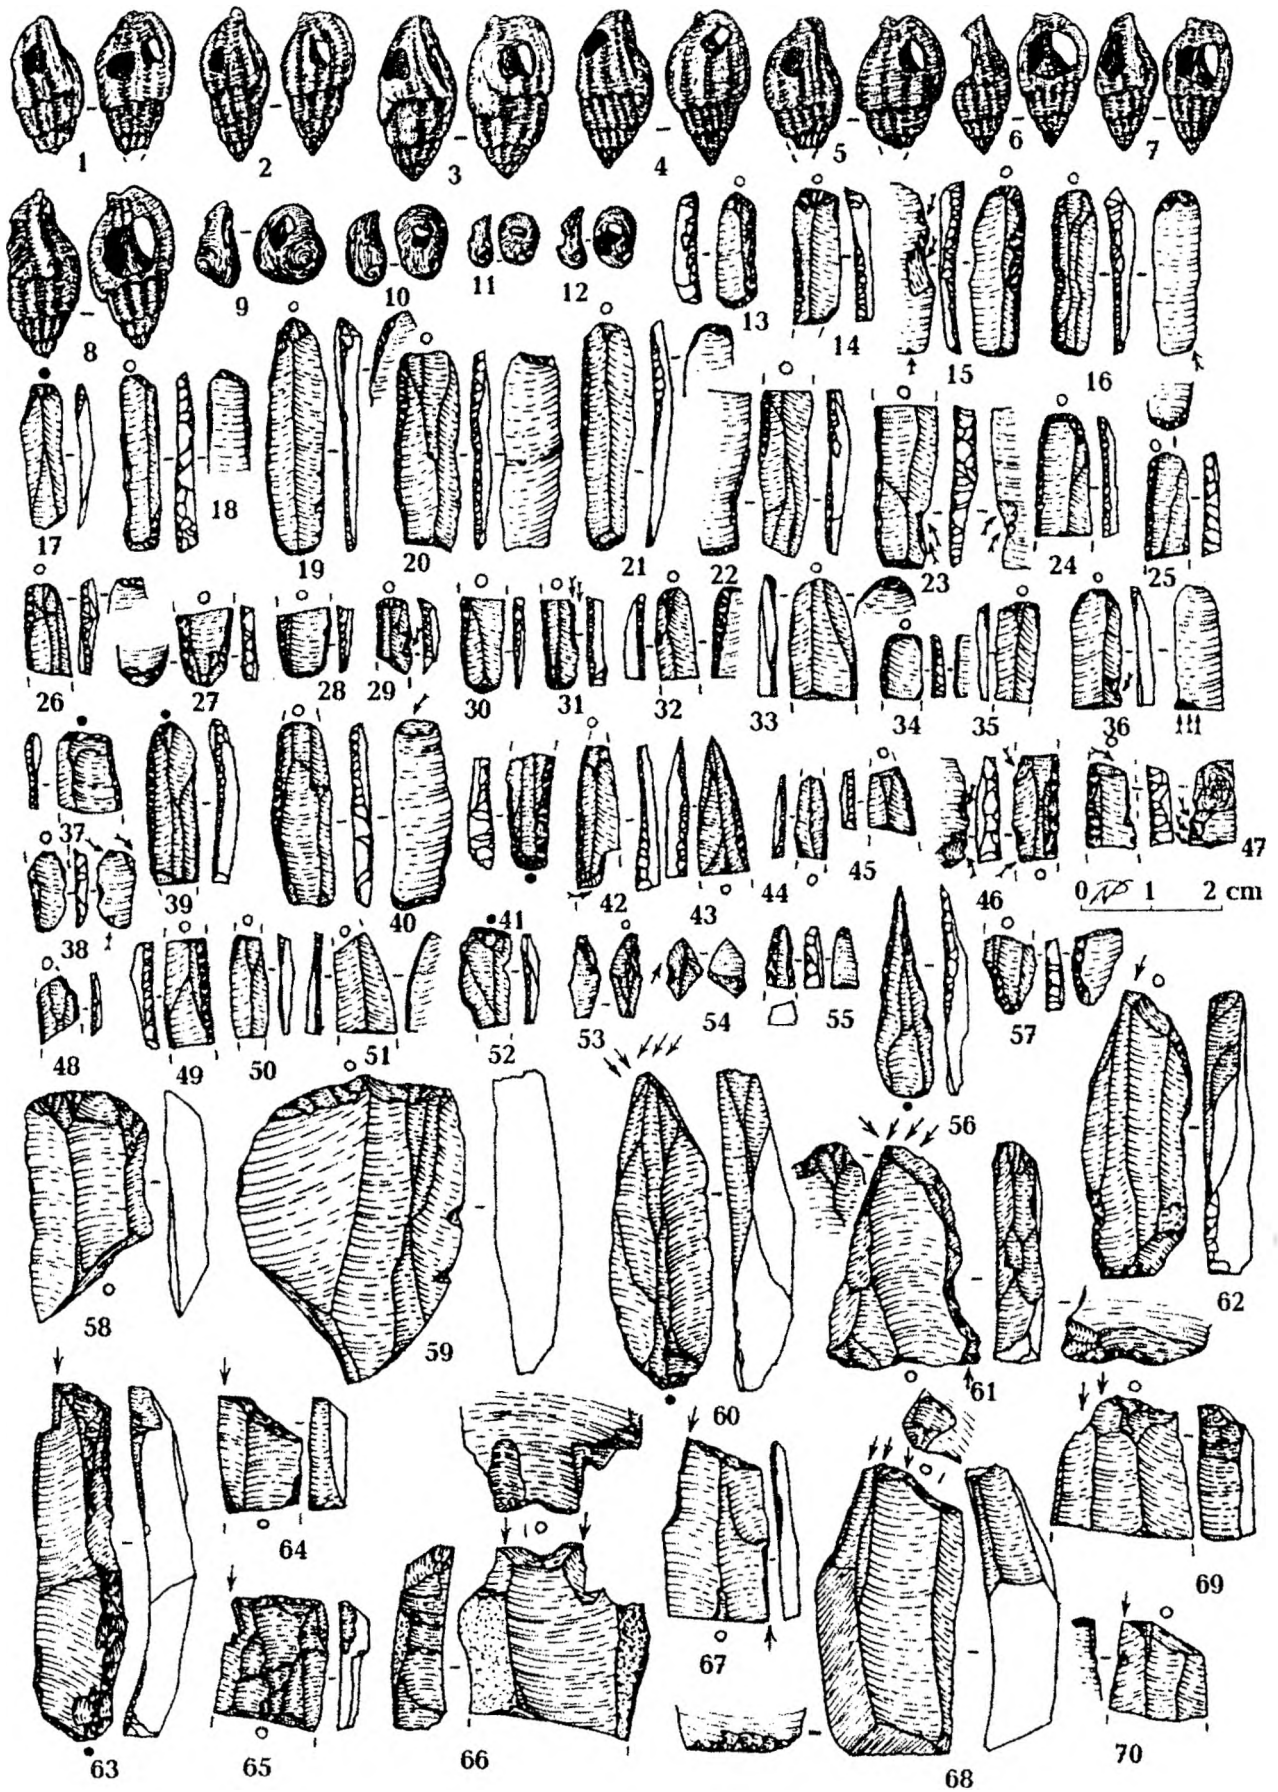 1 2 3 4 5 6 7
8 9 10 11 12 13 14 15 16
17 18 19 20 21 22 23 24 25
26 27 28 29 30 31 32 33 34 35 36
37 38 39 40 41 42 43 44 45 46 47
0 1 2 cm
48 49 50 51 52 53 54 55 56 57
58 59 60 61 62
63 64 65 66 67 68 69 70